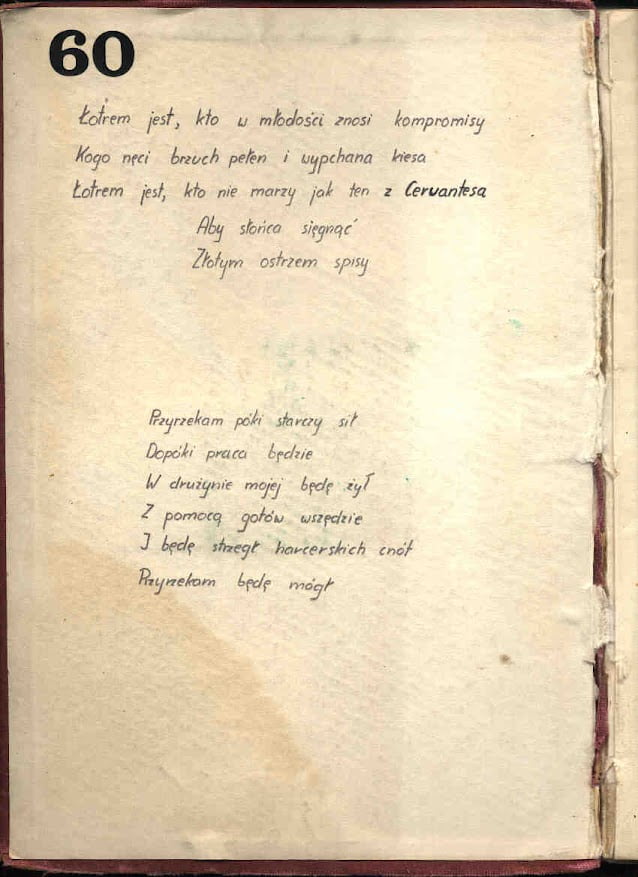 60
Łotrem jest, kto w młodości znosi kompromisy
Kogo nęci brzuch pełen i wypchana kiesa
Łotrem jest, kto nie marzy jak ten z Cervantesa
Aby słońca sięgnąć
Złotym ostrzem spisy
Przyrzekam póki starczy sił
Dopóki praca będzie
W drużynie mojej będę żył
Z pomocą gotów wszędzie
I będę strzegł harcerskich cnót
Przyrzekam będę mógł